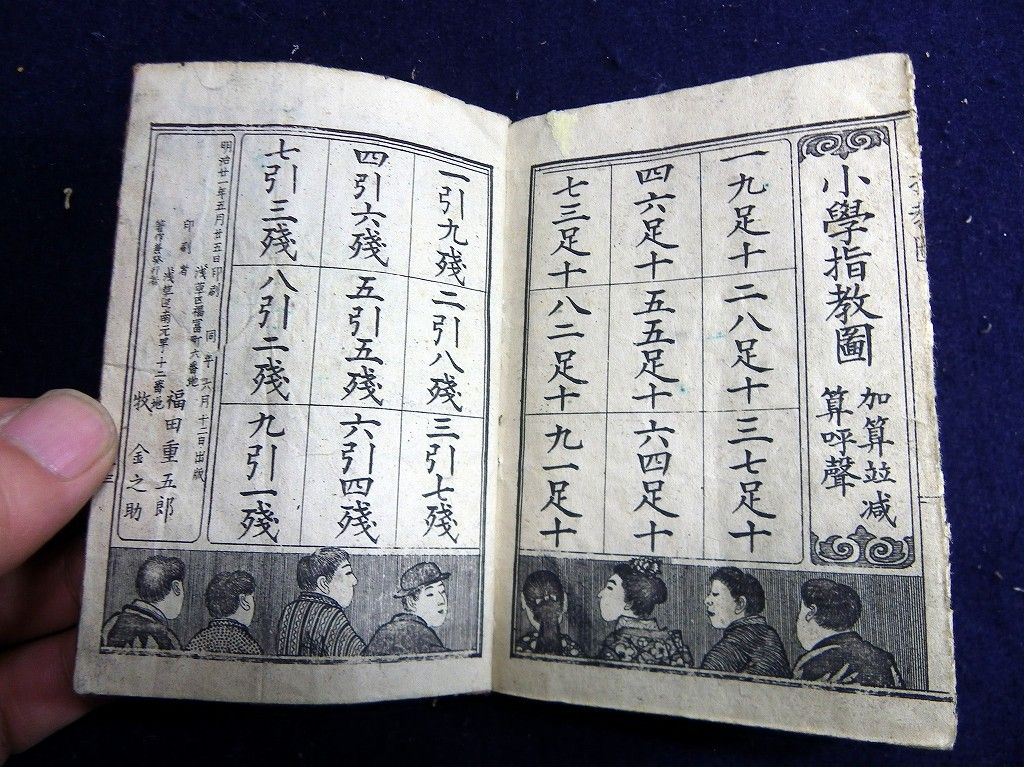 小學指教圖
加算並減
算呼聲
一九足十 二八足十 三七足十
四六足十 五五足十 六四足十
七三足十 八二足十 九一足十
一引九殘 二引八殘 三引七殘
四引六殘 五引五殘 六引四殘
七引三殘 八引二殘 九引一殘
明治廿一年五月廿五日印刷 同年六月十二日出版
浅草区福富町六番地
印刷者 福田重五郎
浅草区南元町十二番地
著作兼発行者 牧金之助